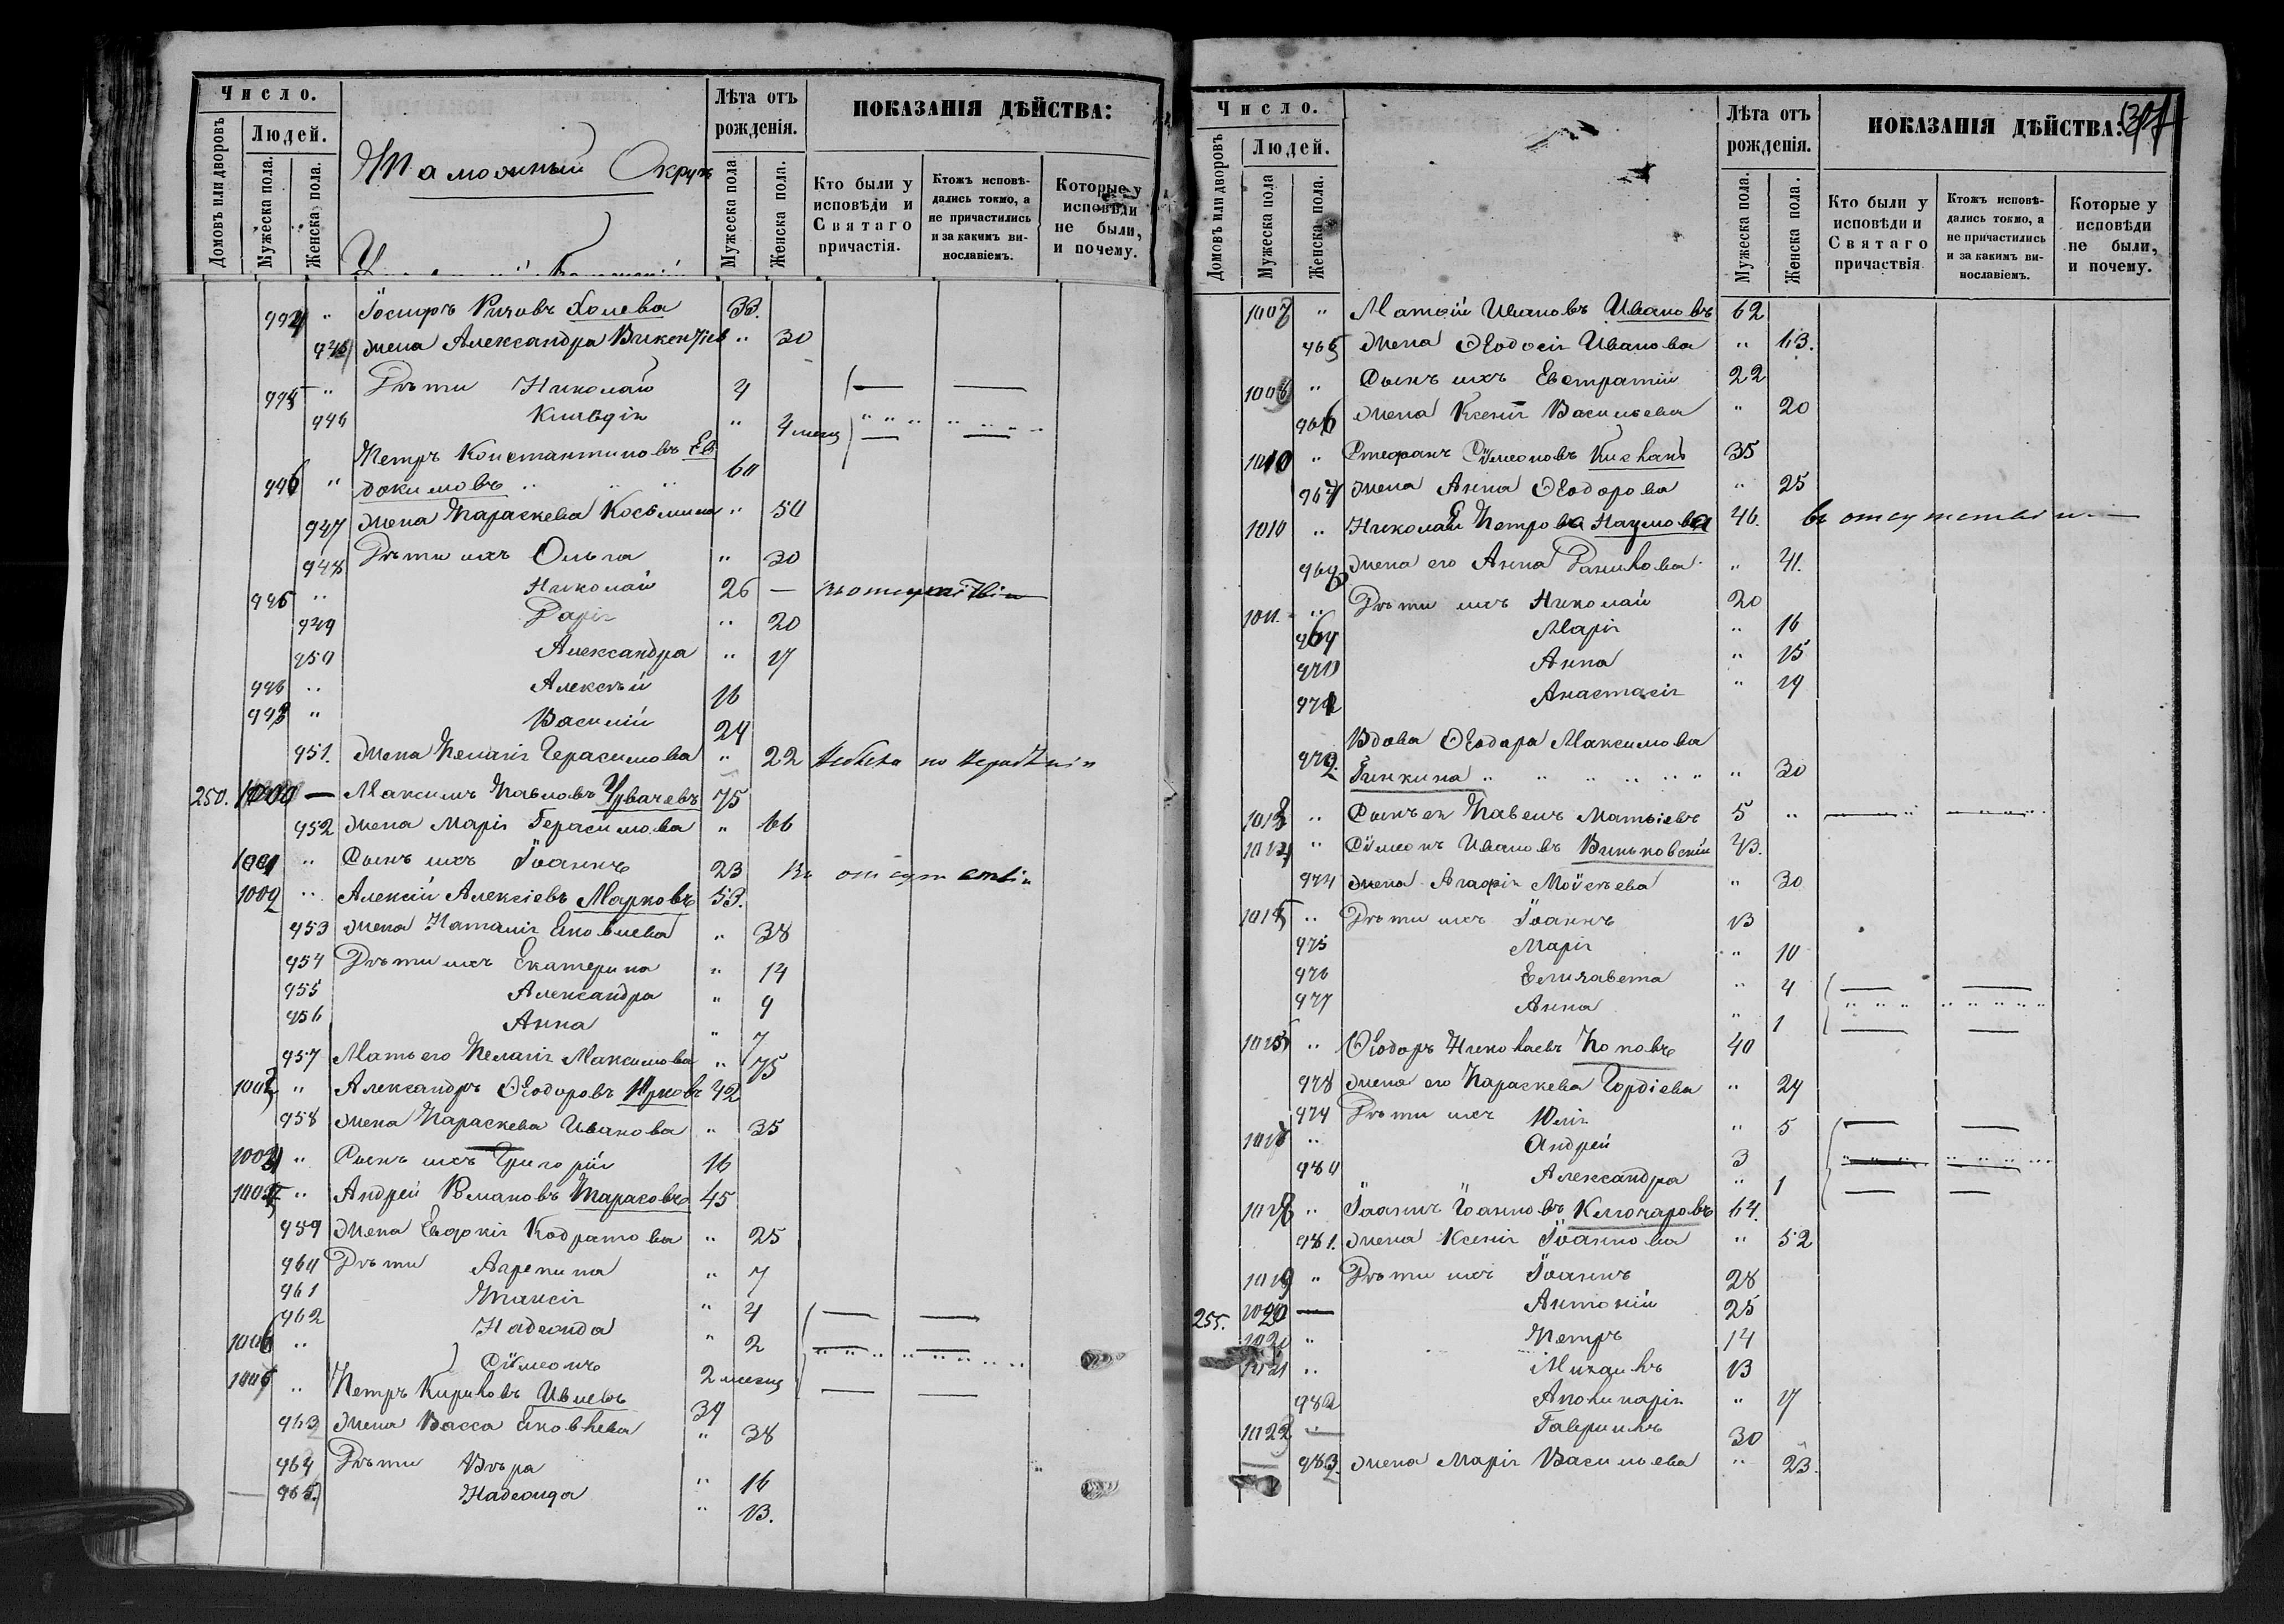 Число.
Домовъ или дворовъ
Людей.
Мужеска пола.
Женска пола.
Таможный Округъ
Лѣта отъ рожденія.
Мужеска пола
Женска пола.
ПОКАЗАНІЯ ДѢЙСТВА:
Кто были у исповѣди и Святаго причастія.
Ктожъ исповѣдались токмо, а не причастились и за какимъ винословіемъ.
Которые у исповѣди не были, и почему.
994 " Іосифъ 33.
945 жена Александра Викентіев " 30
995 " Дѣти Николай 4
946 Клавдія " 4 месяц
Петръ Константиновъ Ев
996 " докимовъ 60
947 жена Параскева Косьмина " 50
948 Дѣти ихъ Ольга " 30
" Николай 26 — въ отсутствіи
949 Дарія " 20
950 Александра " 17
" Алексѣй 16
" Василій 24
951. жена Пелагія Герасимова " 22
250. 1000 — Максимъ Павловъ 75
952 жена Марія Герасимова " 66
1001 " Сынъ ихъ Іоаннъ 23 Въ отсутствіи
1002 " Алексій Алексіевъ Марковъ 53.
953 жена Наталія Яковлева " 38
954 Дѣти ихъ Екатерина " 14
955 Александра " 9
956 Анна " 7
957 Мать его Пелагія Максимова " 75
1003 " Александръ Ѳеодоровъ 42
958 жена Параскева Иванова " 35
1004 " Сынъ ихъ Григорій 16
1005 " Андрей Романовъ Тарасовъ 45
959 жена Евдокія Кодратова " 25
960 Дѣти Агрепина " 7
961 Таисія " 4
962 Надежда " 2
1006 " Сѵмеонъ 2 месяц
" Петръ Кириловъ Ивлевъ 39
963 жена Васса Яковлева " 38
964 Дѣти Вѣра " 16
965. Надежда " 13.
Число.
Домовъ или дворовъ
Людей.
Мужеска пола
Женска пола.
Лѣта отъ рожденія.
Мужеска пола.
Женска пола.
ПОКАЗАНІЯ ДѢЙСТВА:
Кто были у исповѣди и Святаго причаствія
Ктожъ исповѣдались токмо, а не причастились и за какимъ винословіемъ.
Которые у исповѣди не были, и почему.
1007 " Матѳій Ивановъ Ивановъ 62
965 жена Ѳеодосія Иванова " 43.
1008 " Сынъ ихъ Евстратій 22
966 жена Ксенія Васильева " 20
1010 " Стефанъ Сѵмеоновъ 35
967 жена Анна Ѳеодорова " 25
1010 " Николай Петрова Наумова 46. въ отсутствіи
968 жена его Анна Данилова " 41.
1011. " Дѣти ихъ Николай 20
969 Марія " 16
970 Анна " 15
971 Анастасія " 14
Вдова Ѳеодора Максимова
972. Гинкина " 30
1013 " Сынъ ея Павелъ Матѳіевъ 5 "
1014 " Сѵмеонъ Ивановъ Виньковскій 43.
974 жена Агафія Моѵсѣева " 30
1015 " Дѣти ихъ Іоаннъ 13
975 Марія " 10
976 Елизавета " 4
977 Анна " 1
" Ѳеодоръ Николаевъ Поповъ 40
978 жена его Параскева Гордіева " 24
979 Дѣти ихъ Юлія " 5
1017 " Андрей 3
980 Александра " 1
1018 " Іоаннъ Іоанновъ Ключаровъ 64.
981. жена Ксенія Іоаннова " 52
1019 " Дѣти ихъ Іоаннъ 28
255. 1020 — Антоній 25
1020 " Петръ 14
1021 " Михаилъ 13
982 Аполинарія " 7
1022 Гавріилъ 30
983. жена Марія Васильева " 23.